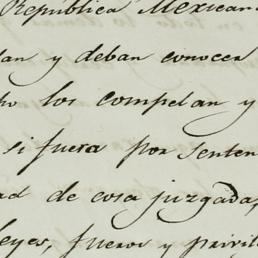 Republica Mexicana
dan y deban conocer
los compelan y
si fuera por senten
ad de cosa juzgada,
leyes, fueros y privile